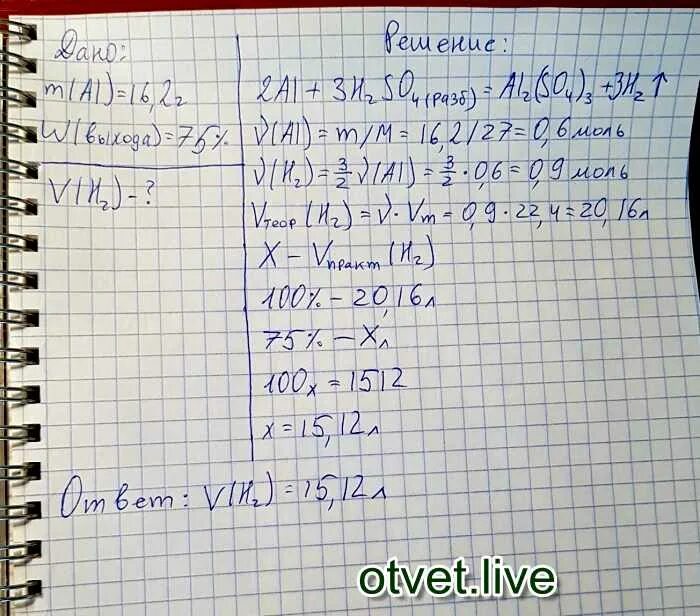 Дано:
m(Al)=16,2г
W(выхода)=75%
V(H₂)-?
Решение:
2Al + 3H₂SO₄(разб) = Al₂(SO₄)₃ + 3H₂↑
ν(Al) = m/M = 16,2/27 = 0,6 моль
ν(H₂) = 3/2 ν(Al) = 3/2 · 0,6 = 0,9 моль
Vтеор(H₂) = ν · Vm = 0,9 · 22,4 = 20,16л
X – Vпракт(H₂)
100% – 20,16л
75% – Xл
100x = 1512
x = 15,12л
Ответ: V(H₂) = 15,12л
otvet.live